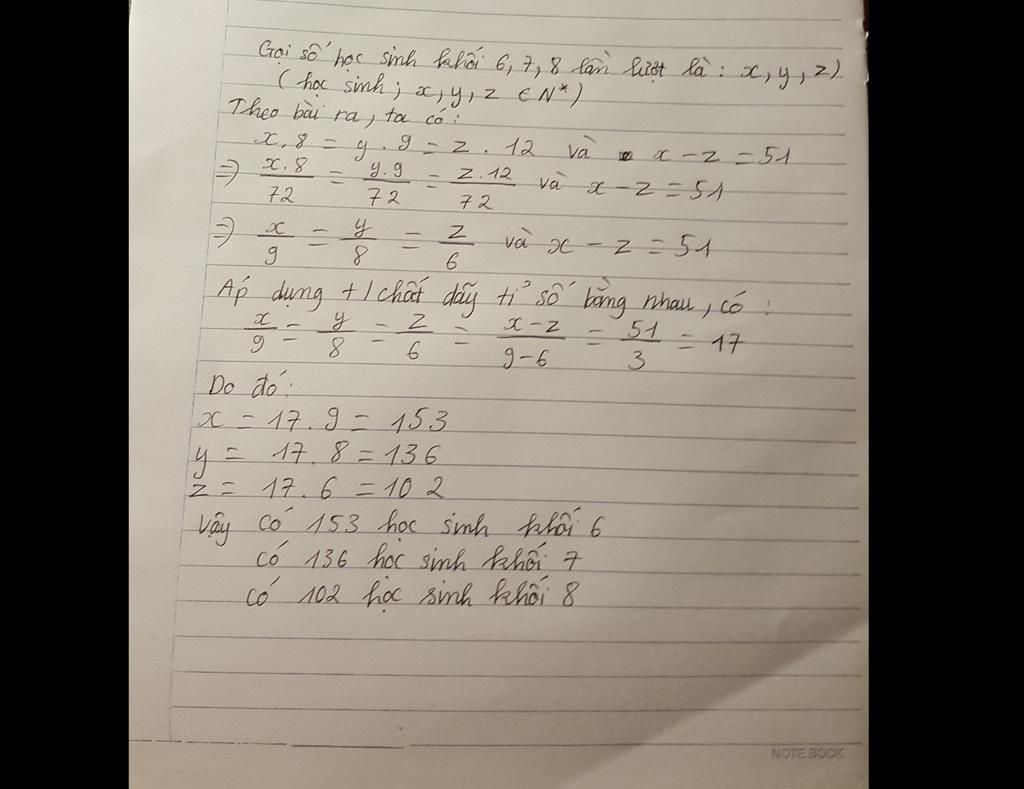 Gọi số học sinh khối 6, 7, 8 lần lượt là: x, y, z)
(học sinh; x, y, z ∈ N*)
Theo bài ra, ta có:
x.8 = y.9 = z.12 và x - z = 51
=> x.8/72 = y.9/72 = z.12/72 và x - z = 51
=> x/9 = y/8 = z/6 và x - z = 51
Áp dụng t/chất dãy tỉ số bằng nhau, có:
x/9 = y/8 = z/6 = x-z/9-6 = 51/3 = 17
Do đó:
x = 17.9 = 153
y = 17.8 = 136
z = 17.6 = 102
Vậy có 153 học sinh khối 6
có 136 học sinh khối 7
có 102 học sinh khối 8
NOTE BOOK